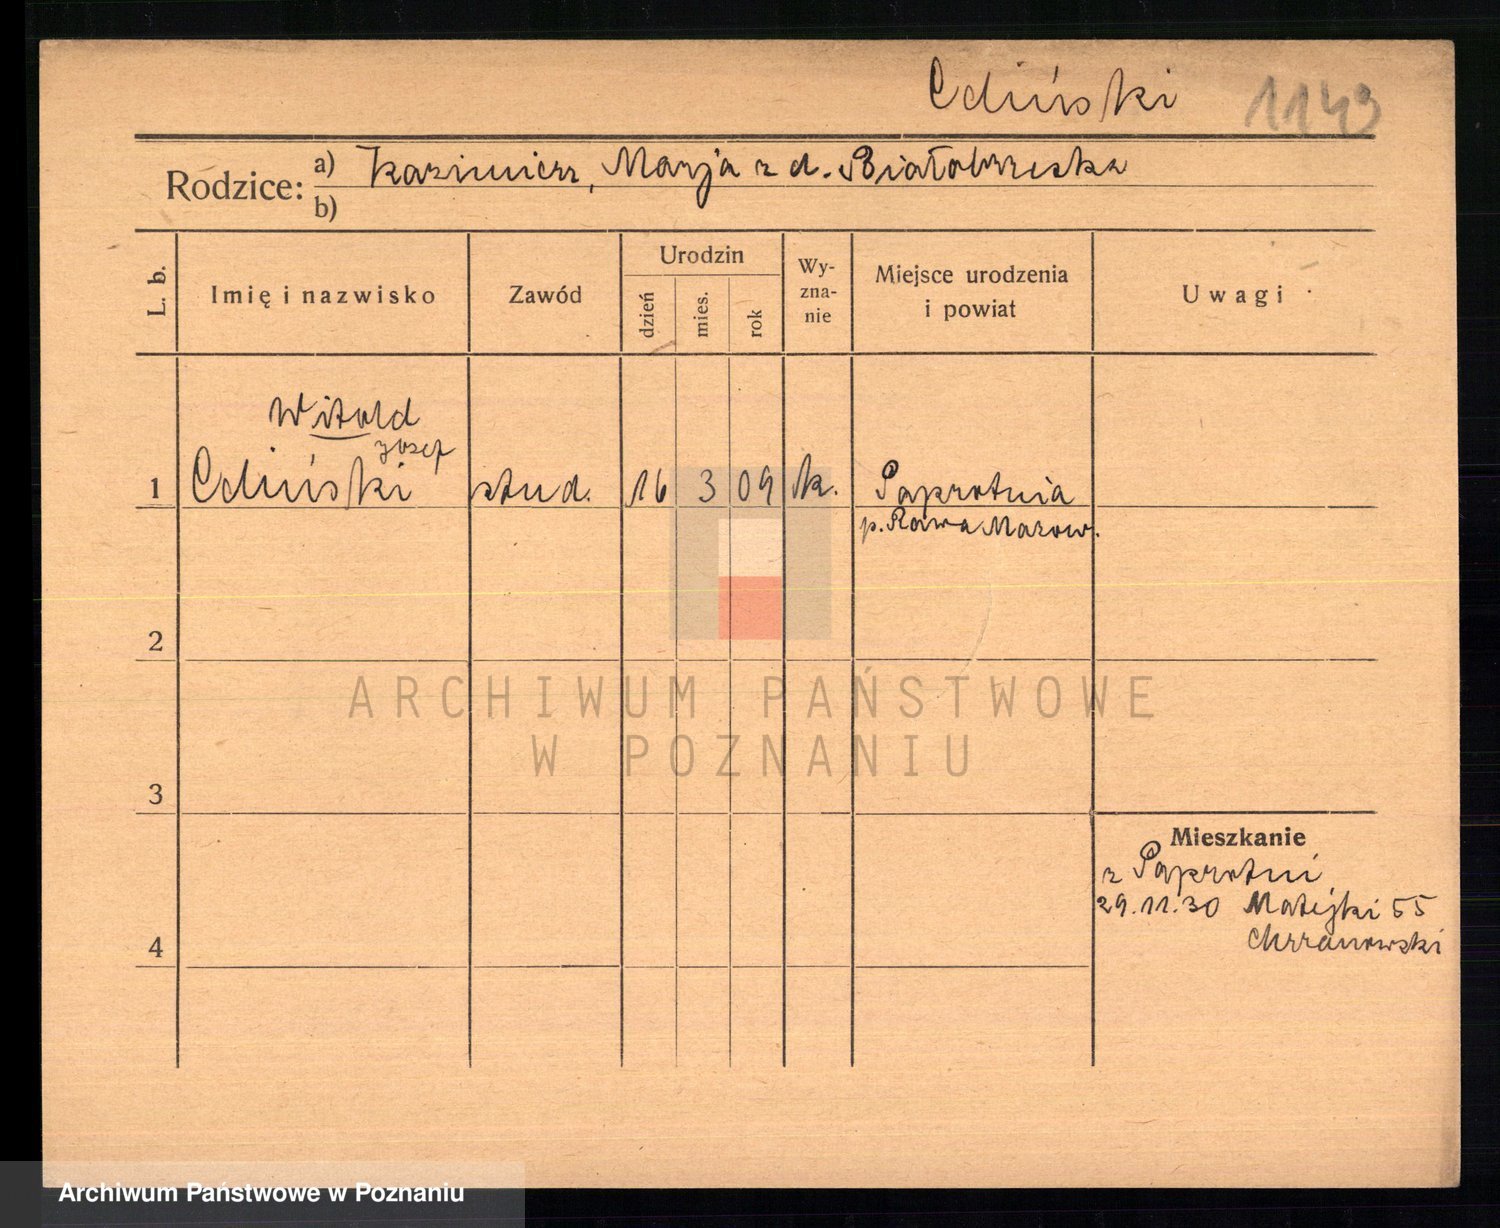 Ediński 1143
Rodzice: a) Kazimierz, Marja z d. Białobrzeska
b)
L. b. Imię i nazwisko Zawód Urodzin dzień mies. rok Wy-zna-nie Miejsce urodzenia i powiat Uwagi
Witold
Józef
1 Ediński stud. 16 3 09 k. Paprotnia
p. Rawa Mazow.
2
ARCHIWUM PAŃSTWOWE
W POZNANIU
3
Mieszkanie
z Paprotni
29.11.30 Matejki 55
Chrzanowski
4
Archiwum Państwowe w Poznaniu